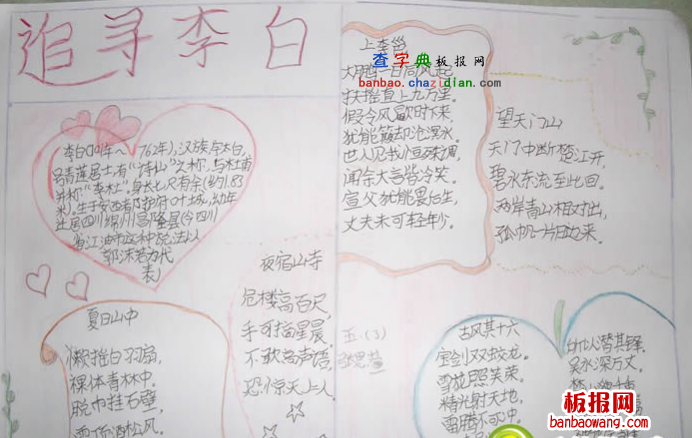 追寻李白
李白(701年~762年),汉族,字太白,
号青莲居士,有"诗仙"之称,与杜甫
并称"李杜"。身长七尺有余(约1.83
米)。生于安西都护府叶城,幼年
迁居四川绵州昌隆县(今四川
省江油市
郭沫若为代
表)
夏日山中
懒摇白羽扇,
裸体青林中。
脱巾挂石壁,
露顶洒松风。
夜宿山寺
危楼高百尺,
手可摘星晨。
不敢高声语,
恐惊天上人。
上李邕
大鹏一日同风起
扶摇直上九万里。
假令风歇时下来,
犹能簸却沧溟水。
世人见我恒殊调,
闻余大言皆冷笑。
宣父犹能畏后生,
丈夫未可轻年少。
查字典板报网
banbao.chazidian.com
望天门山
天门中断楚江开,
碧水东流至此回。
两岸青山相对出,
孤帆一片日边来。
五.(3)
古风其十六
宝剑双蛟龙,
雪花照芙蓉。
精光射天地,
雷腾不可冲。
吴水深万丈,
板报网
banbaowang.com